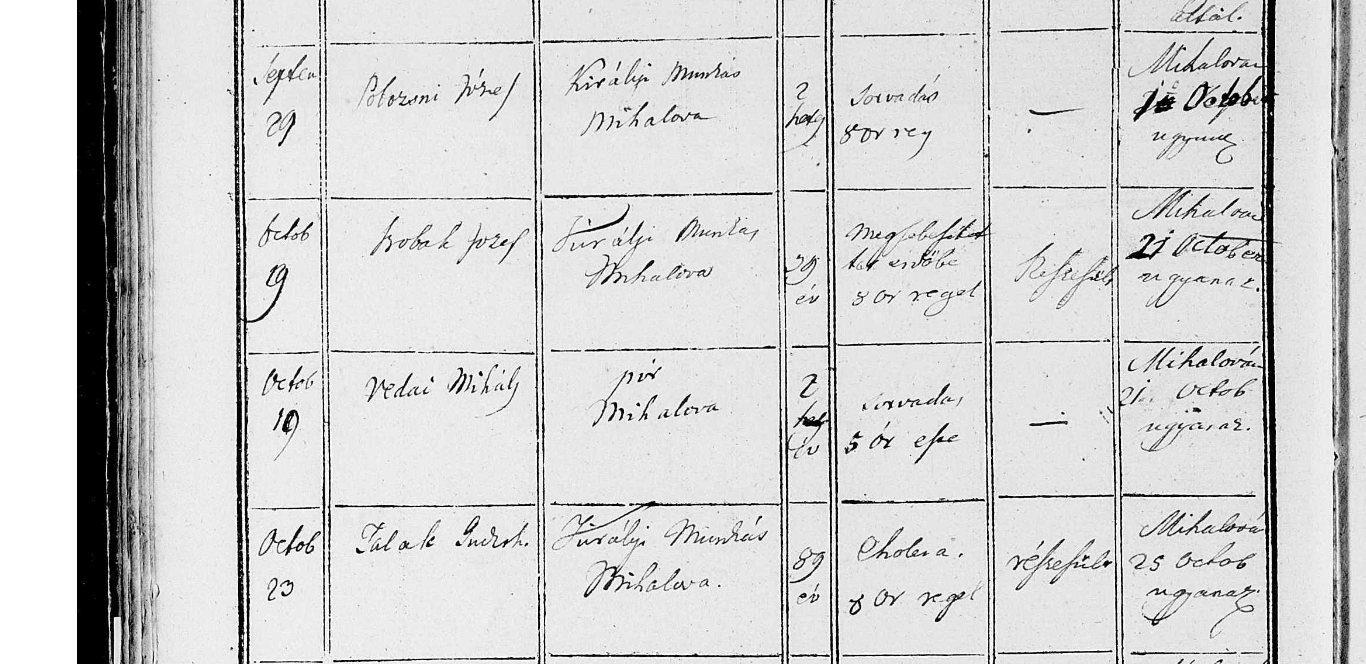 által.
Septem
29
Polozsni József
Királyi Munkás
Mihalova
2
hety
sorvadás
8 or reg
—
Mihalovan
1 October
ugyanaz
Octob
19
Hrobak Jozef
Királyi Munkás
Mihalova
29
év
8 or regel
Részesült
Mihalovan
21 October
ugyanaz.
Octob
19
Vedai Mihály
pór
Mihalova
2
év
sorvadas
5 ór este
—
Mihalován
21. Octob
ugyanaz.
Octob
23
Talak
Királyi Munkás
Mihalova.
89
év
Cholera.
8 Or regel
részesült
Mihalová
25 Octob
ugyanaz